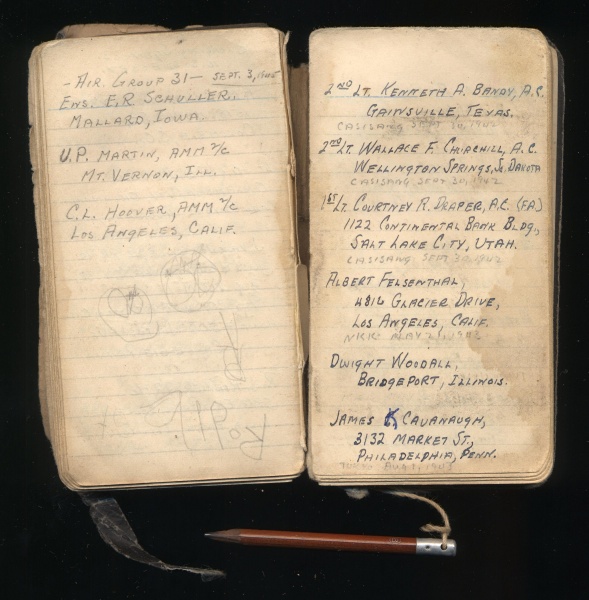 - AIR. GROUP 31 - SEPT. 3, 1945
ENS. E.R SCHULLER.
MALLARD, IOWA.
U.P. MARTIN, AMM 2/C
MT. VERNON, ILL.
C.L. HOOVER, AMM 2/C
LOS ANGELES, CALIF.
2ND LT. KENNETH A. BANDY, A.C.
GAINSVILLE, TEXAS.
CASISANG SEPT 30, 1942
2ND LT. WALLACE F. CHURCHILL, A.C.
WELLINGTON SPRINGS, S. DAKOTA
CASISANG SEPT 30, 1942
1ST LT. COURTNEY R. DRAPER, A.C. (FA)
1122 CONTINENTAL BANK BLDG.,
SALT LAKE CITY, UTAH.
CASISANG SEPT 30, 1942
ALBERT FELSENTHAL,
4816 GLACIER DRIVE,
LOS ANGELES, CALIF.
MAY 21, 1943
DWIGHT WOODALL,
BRIDGEPORT, ILLINOIS.
JAMES K CAVANAUGH,
3132 MARKET ST.,
PHILADELPHIA, PENN.
AUG 1, 1943